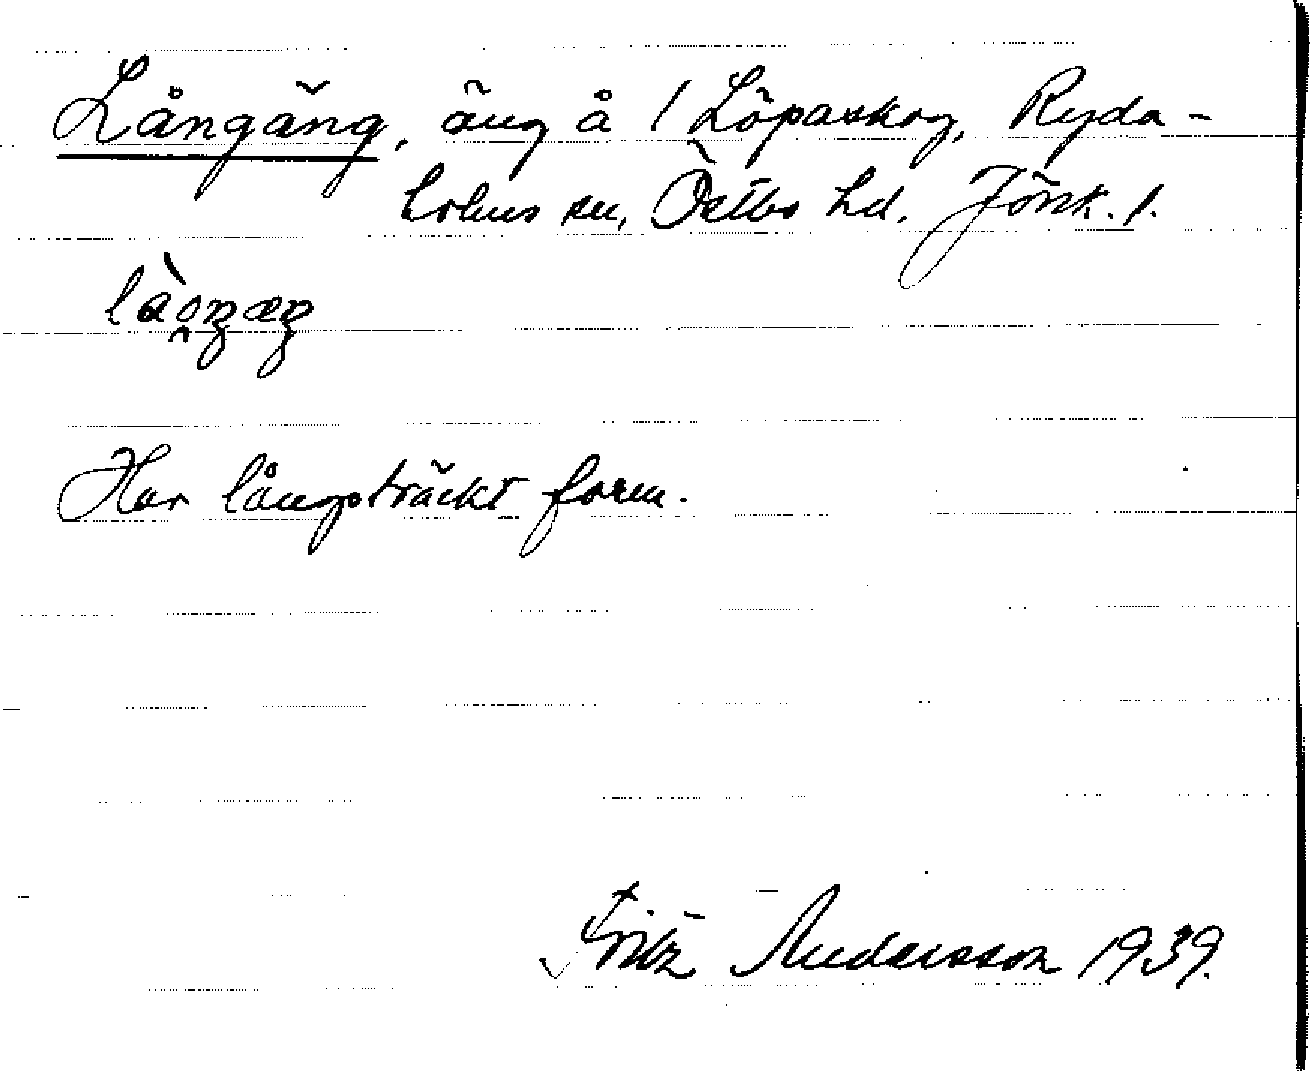 Långäng, äng å 1 Löpaskog, Ryda-
holms sn, Östbo hd. Jönk. l.
Har långsträckt form.
Fritz Andersson 1939.